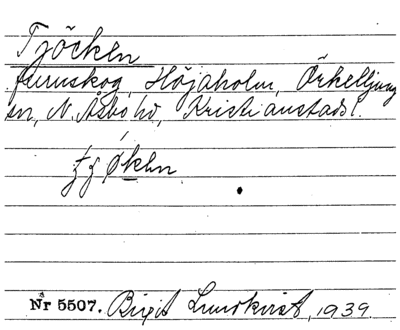 Tjöcken
furuskog, Höjaholm, Örkelljung
sn, N. Åsbo hd, Kristianstads l.
Nr 5507. Birgit Lundkvist, 1939.